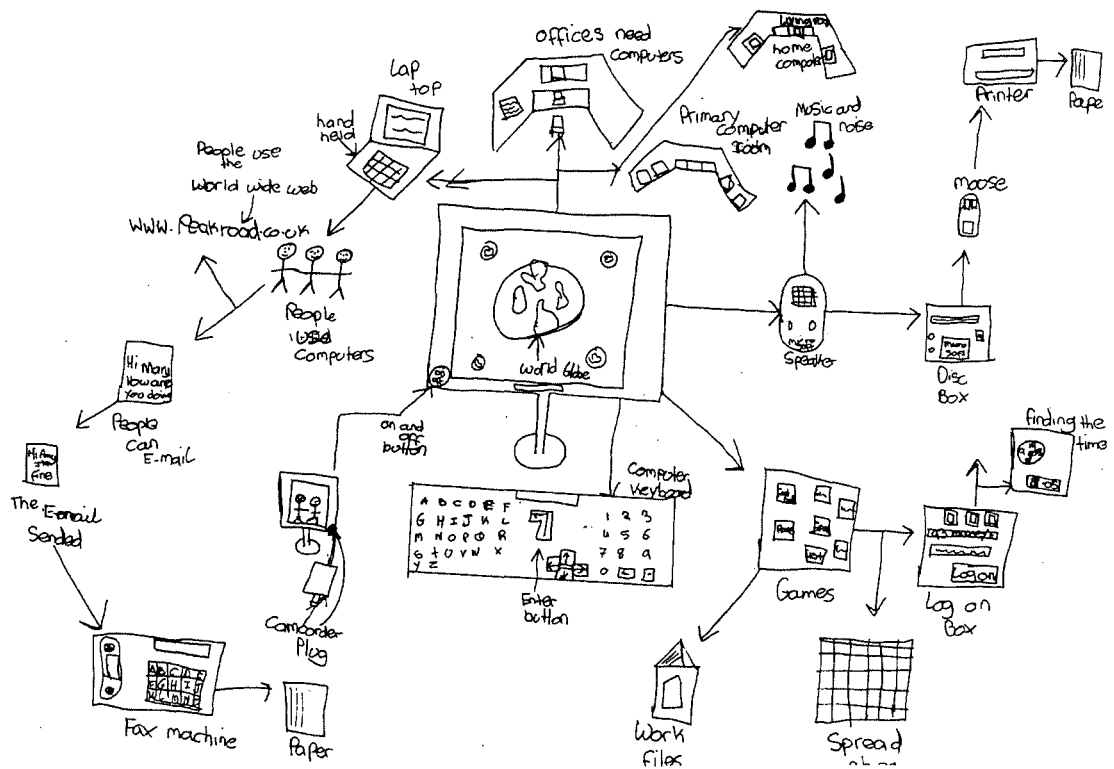 offices need
computers
Living room
home
computer
Lap
top
hand
held
Primary
computer
room
Music and
noise
Printer
Pape
moose
People use
the
world wide web
www.Peakroad.co.uk
People
used
Computers
world Globe
Speaker
Disc
Box
Hi Mary
How are
you doing
People
can
E-mail
on and
off
button
finding the
time
Hi Amy
I'm
fine
The E-mail
Sended
Computer
keyboard
A B C D E F
G H I J K L
M N O P Q R
S t U V W X
Y Z
1 2 3
4 5 6
7 8 9
0
Enter
button
Games
Log on
Log on
Box
Camcorder
Plug
Fax machine
Paper
Work
files
Spread